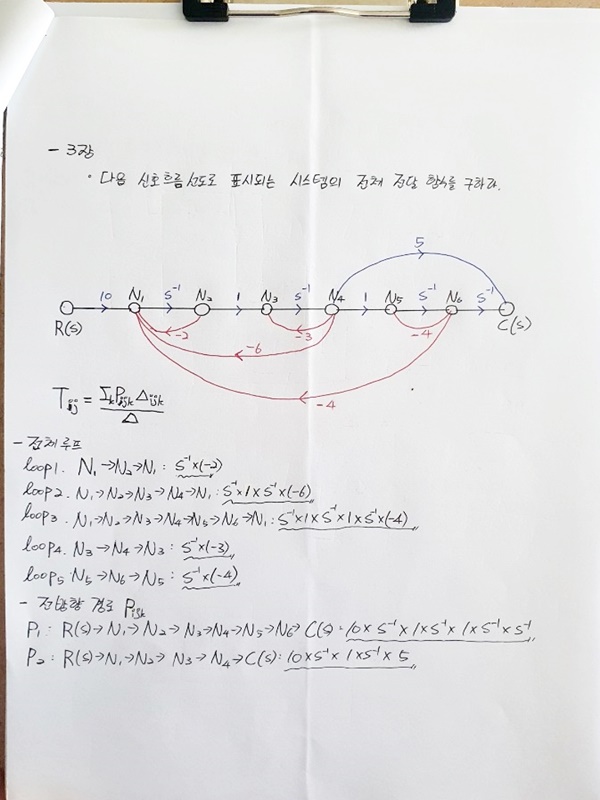 - 3장
· 다음 신호흐름선도로 표시되는 시스템의 전체 전달 함수를 구하라.
5
10 N₁ S⁻¹ N₂ 1 N₃ S⁻¹ N₄ 1 N₅ S⁻¹ N₆ S⁻¹
R(s) -2 -3 -4 C(s)
-6
-4
Tᵢⱼ = ΣₖPᵢⱼₖΔᵢⱼₖ / Δ
- 전체 루프
loop1. N₁→N₂→N₁ : S⁻¹×(-2)
loop2. N₁→N₂→N₃→N₄→N₁ : S⁻¹×1×S⁻¹×(-6)
loop3. N₁→N₂→N₃→N₄→N₅→N₆→N₁ : S⁻¹×1×S⁻¹×1×S⁻¹×(-4)
loop4. N₃→N₄→N₃ : S⁻¹×(-3)
loop5. N₅→N₆→N₅ : S⁻¹×(-4)
- 전방향 경로 Pᵢⱼₖ
P₁ : R(s)→N₁→N₂→N₃→N₄→N₅→N₆→C(s) : 10×S⁻¹×1×S⁻¹×1×S⁻¹×S⁻¹
P₂ : R(s)→N₁→N₂→N₃→N₄→C(s) : 10×S⁻¹×1×S⁻¹×5